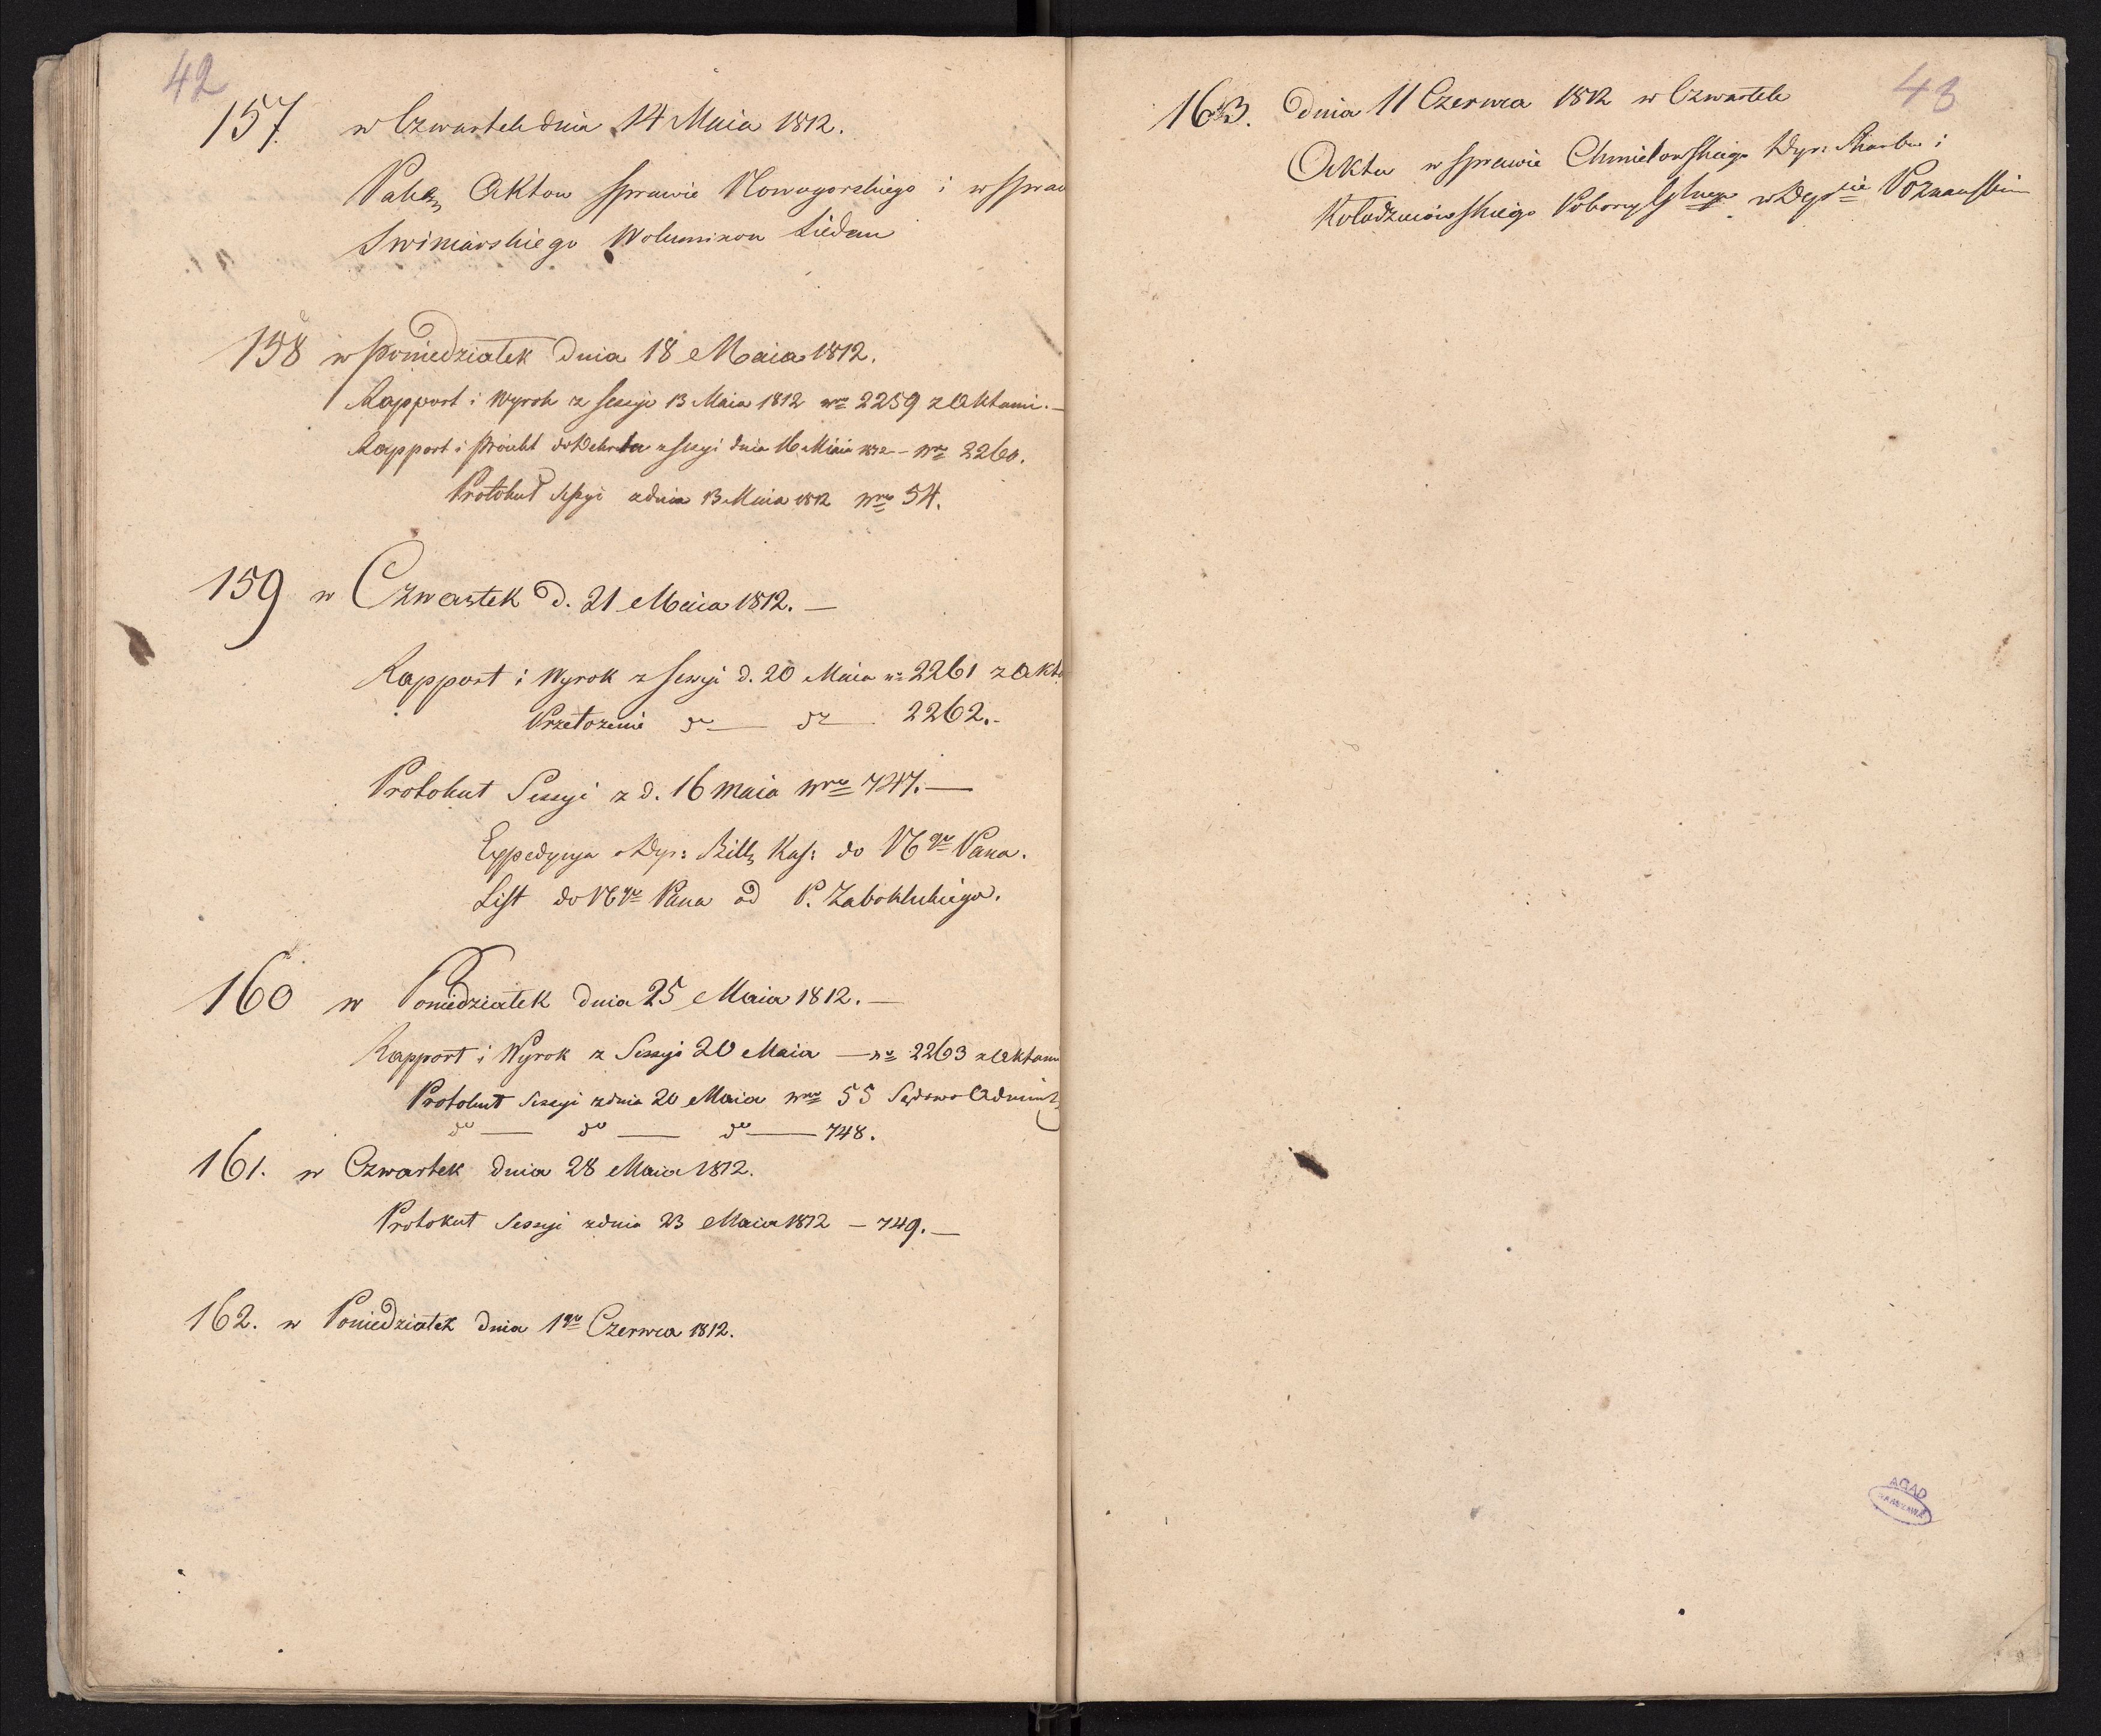 42
157 w Czwartek dnia 14 Maia 1812.
Akton Sprawie Nowogorskiego i w Spraw
Swiniarskiego Woluminow Siedem
158 w Poniedziałek Dnia 18 Maia 1812.
Rapport i Wyrok z Sessyi 13 Maia 1812 nro 2259 z Aktami.—
Rapport i Proiekt do Dekretu z Sessyi dnia 16 Maia 1812 — Nro 2260.
Protokuł Sessyi z dnia 13 Maia 1812 Nro 54.
159 w Czwartek D. 21 Maia 1812.—
Rapport i Wyrok z Sessyi d. 20 Maia nro 2261 z Akta
Przełożenie do — do — 2262.-
Protokuł Sessyi z d. 16 Maia Nro 747.—
Expedycya Dyr: Kas: do Ngo Pana.
List do Ngo Pana od P. Zabokluckiego.
160 w Poniedziałek dnia 25 Maia 1812.—
Rapport i Wyrok z Sessyi 20 Maia — nro 2263 z Aktam
Protokuł Sessyi z dnia 20 Maia Nro 55 Sądowo Administ
do — do — do — 748.
161. w Czwartek dnia 28 Maia 1812.
Protokuł Sessyi z dnia 23 Maia 1812 — 749.—
162. w Poniedziałek dnia 1go Czerwca 1812.
43
163. Dnia 11 Czerwca 1812 w Czwartek
Akta w Sprawie Chmielowskiego Dyr: Skarbu i
Kołudzniowskiego Poborcy w Depcie Poznanskim
AGAD
WARSZAWA